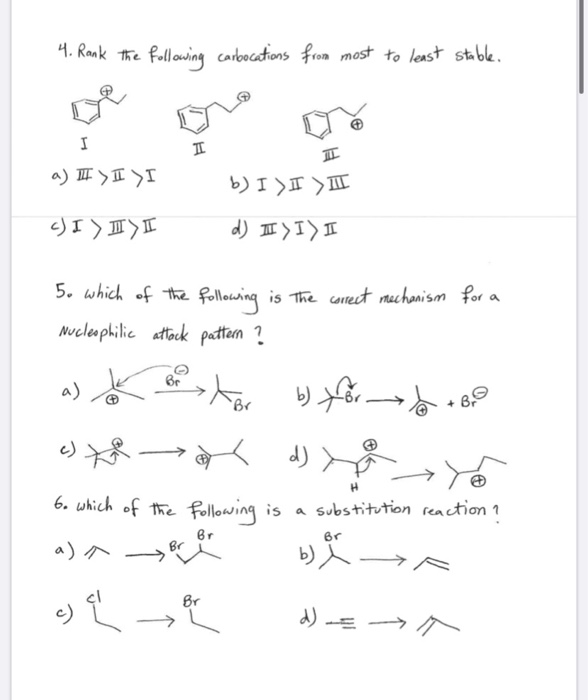 4. Rank the following carbocations from most to least stable.
⊕ ⊕ ⊕
I II III
a) III > II > I b) I > II > III
c) I > III > II d) III > I > II
5. which of the following is the correct mechanism for a
Nucleophilic attack pattern ?
a) ⊕ Br ⊖ → Br b) Br → ⊕ + Br⊖
c) ⊕ → ⊕ d) H ⊕ → ⊕
6. which of the following is a substitution reaction ?
a) → Br Br b) Br →
c) Cl → Br d) →